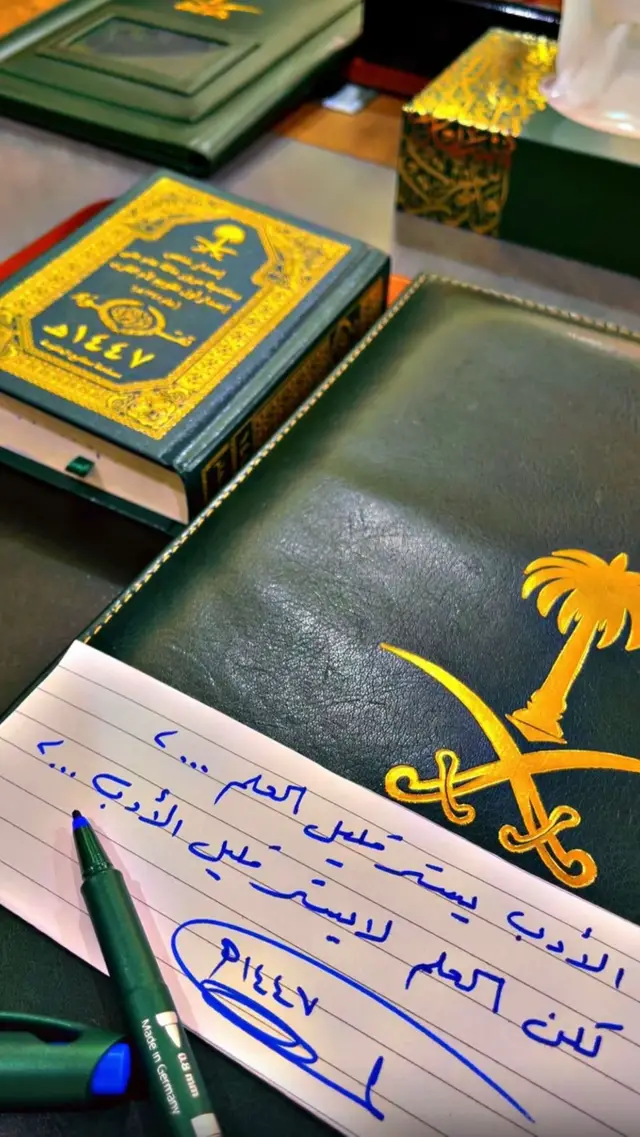 إصدار خاص
١٤٤٧هـ
الأدب يستر قليل العلم ...،
لكن العلم لا يستر قليل الأدب ...،
١٤٤٧هـ
0.8 mm
Made in Germany